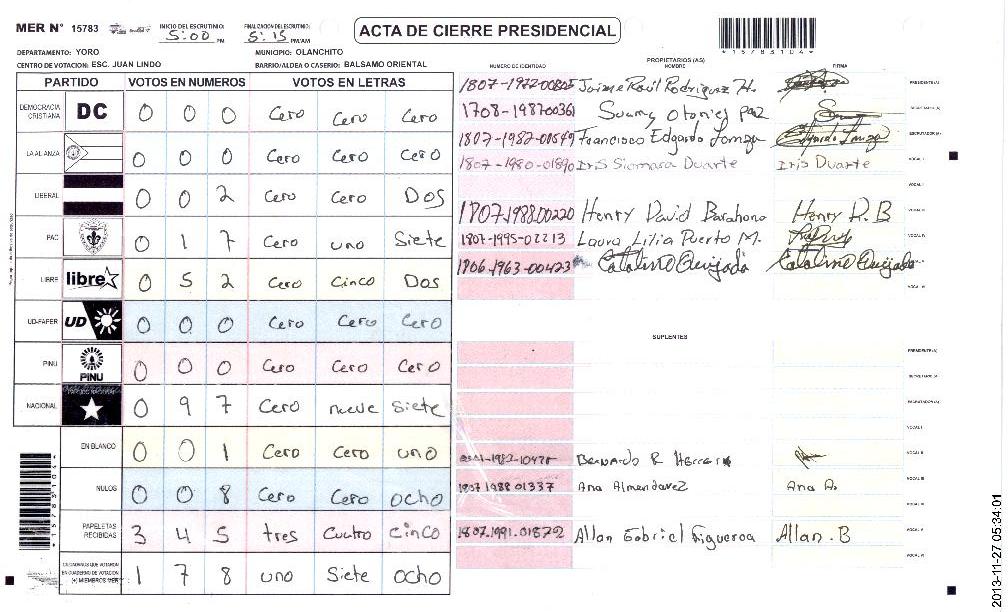 MER N° 15783 INICIO DEL ESCRUTINIO: 5:00 PM FINALIZACION DEL ESCRUTINIO: 5:15 PM/AM ACTA DE CIERRE PRESIDENCIAL
DEPARTAMENTO: YORO MUNICIPIO: OLANCHITO *15783104*
CENTRO DE VOTACION: ESC. JUAN LINDO BARRIO/ALDEA O CASERIO: BALSAMO ORIENTAL
PARTIDO VOTOS EN NUMEROS VOTOS EN LETRAS
DEMOCRACIA CRISTIANA DC 0 0 0 Cero Cero Cero
LA ALIANZA 0 0 0 Cero Cero Cero
LIBERAL 0 0 2 Cero Cero Dos
PAC 0 1 7 Cero uno Siete
LIBRE libre 0 5 2 Cero Cinco Dos
UD-FAPER UD 0 0 0 Cero Cero Cero
PINU PINU 0 0 0 Cero Cero Cero
NACIONAL 0 9 7 Cero nueve Siete
EN BLANCO 0 0 1 Cero Cero uno
NULOS 0 0 8 Cero Cero ocho
PAPELETAS RECIBIDAS 3 4 5 tres Cuatro cinco
CIUDADANOS QUE VOTARON EN CUADERNO DE VOTACION (+) MIEMBROS MER 1 7 8 uno Siete ocho
PROPIETARIOS (AS)
NUMERO DE IDENTIDAD NOMBRE FIRMA
Jaime Raúl Rodriguez H. PRESIDENTE(A)
1708-1987-00361 Suamy otoniel paz SECRETARIO(A)
1807-1982-00549 Francisco Edgardo Lomza Edgardo Lomza ESCRUTADOR(A)
1807-1980-01890 Iris Siomara Duarte Iris Duarte VOCAL I
VOCAL II
1807.1988.00220 Henry David Barahona Henry D.B VOCAL III
1807-1995-02213 Laura Lilia Puerto M. VOCAL IV
1806.1963-00423 Catalino Quijada Catalino Quijada VOCAL V
VOCAL VI
SUPLENTES
PRESIDENTE(A)
SECRETARIO(A)
ESCRUTADOR(A)
VOCAL I
Bernardo R Herrera VOCAL II
1807 1988 01337 Ana Almendarez Ana A. VOCAL III
VOCAL IV
1807.1991.01872 Allan Gabriel Figueroa Allan.B VOCAL V
VOCAL VI
2013-11-27 05:34:01